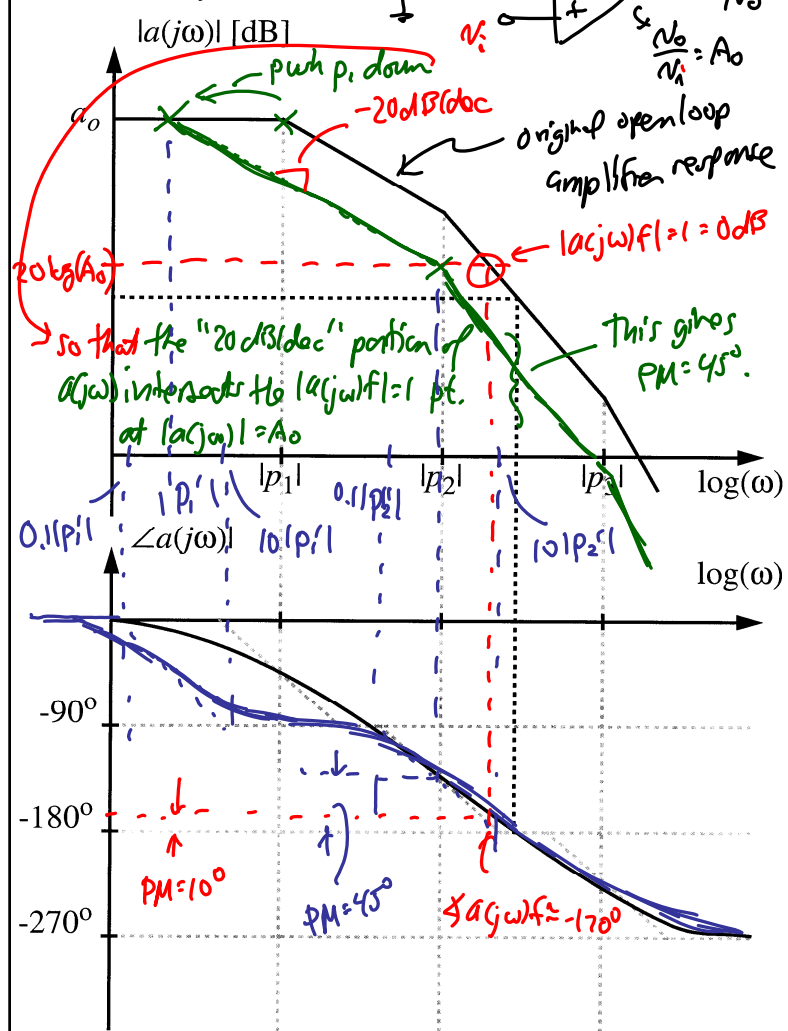 |a(jω)| [dB]
+
No
Ni
No/Ni = A₀
push p₁ down
-20dB/dec
a₀
original open loop
amplifier response
|a(jω)f|=1=0dB
20log(A₀)
so that the "20dB/dec" portion of
a(jω) intersects the |a(jω)f|=1 pt.
at |a(jω)|=A₀
This gives
PM=45°.
|p₁|
|p₂|
|p₃|
log(ω)
0.1|p₁'|
|p₁'|
10|p₁'|
0.1|p₂'|
10|p₂'|
∠a(jω)|
log(ω)
-90º
-180º
-270º
PM=10°
PM=45°
∡a(jω)f≈-170°